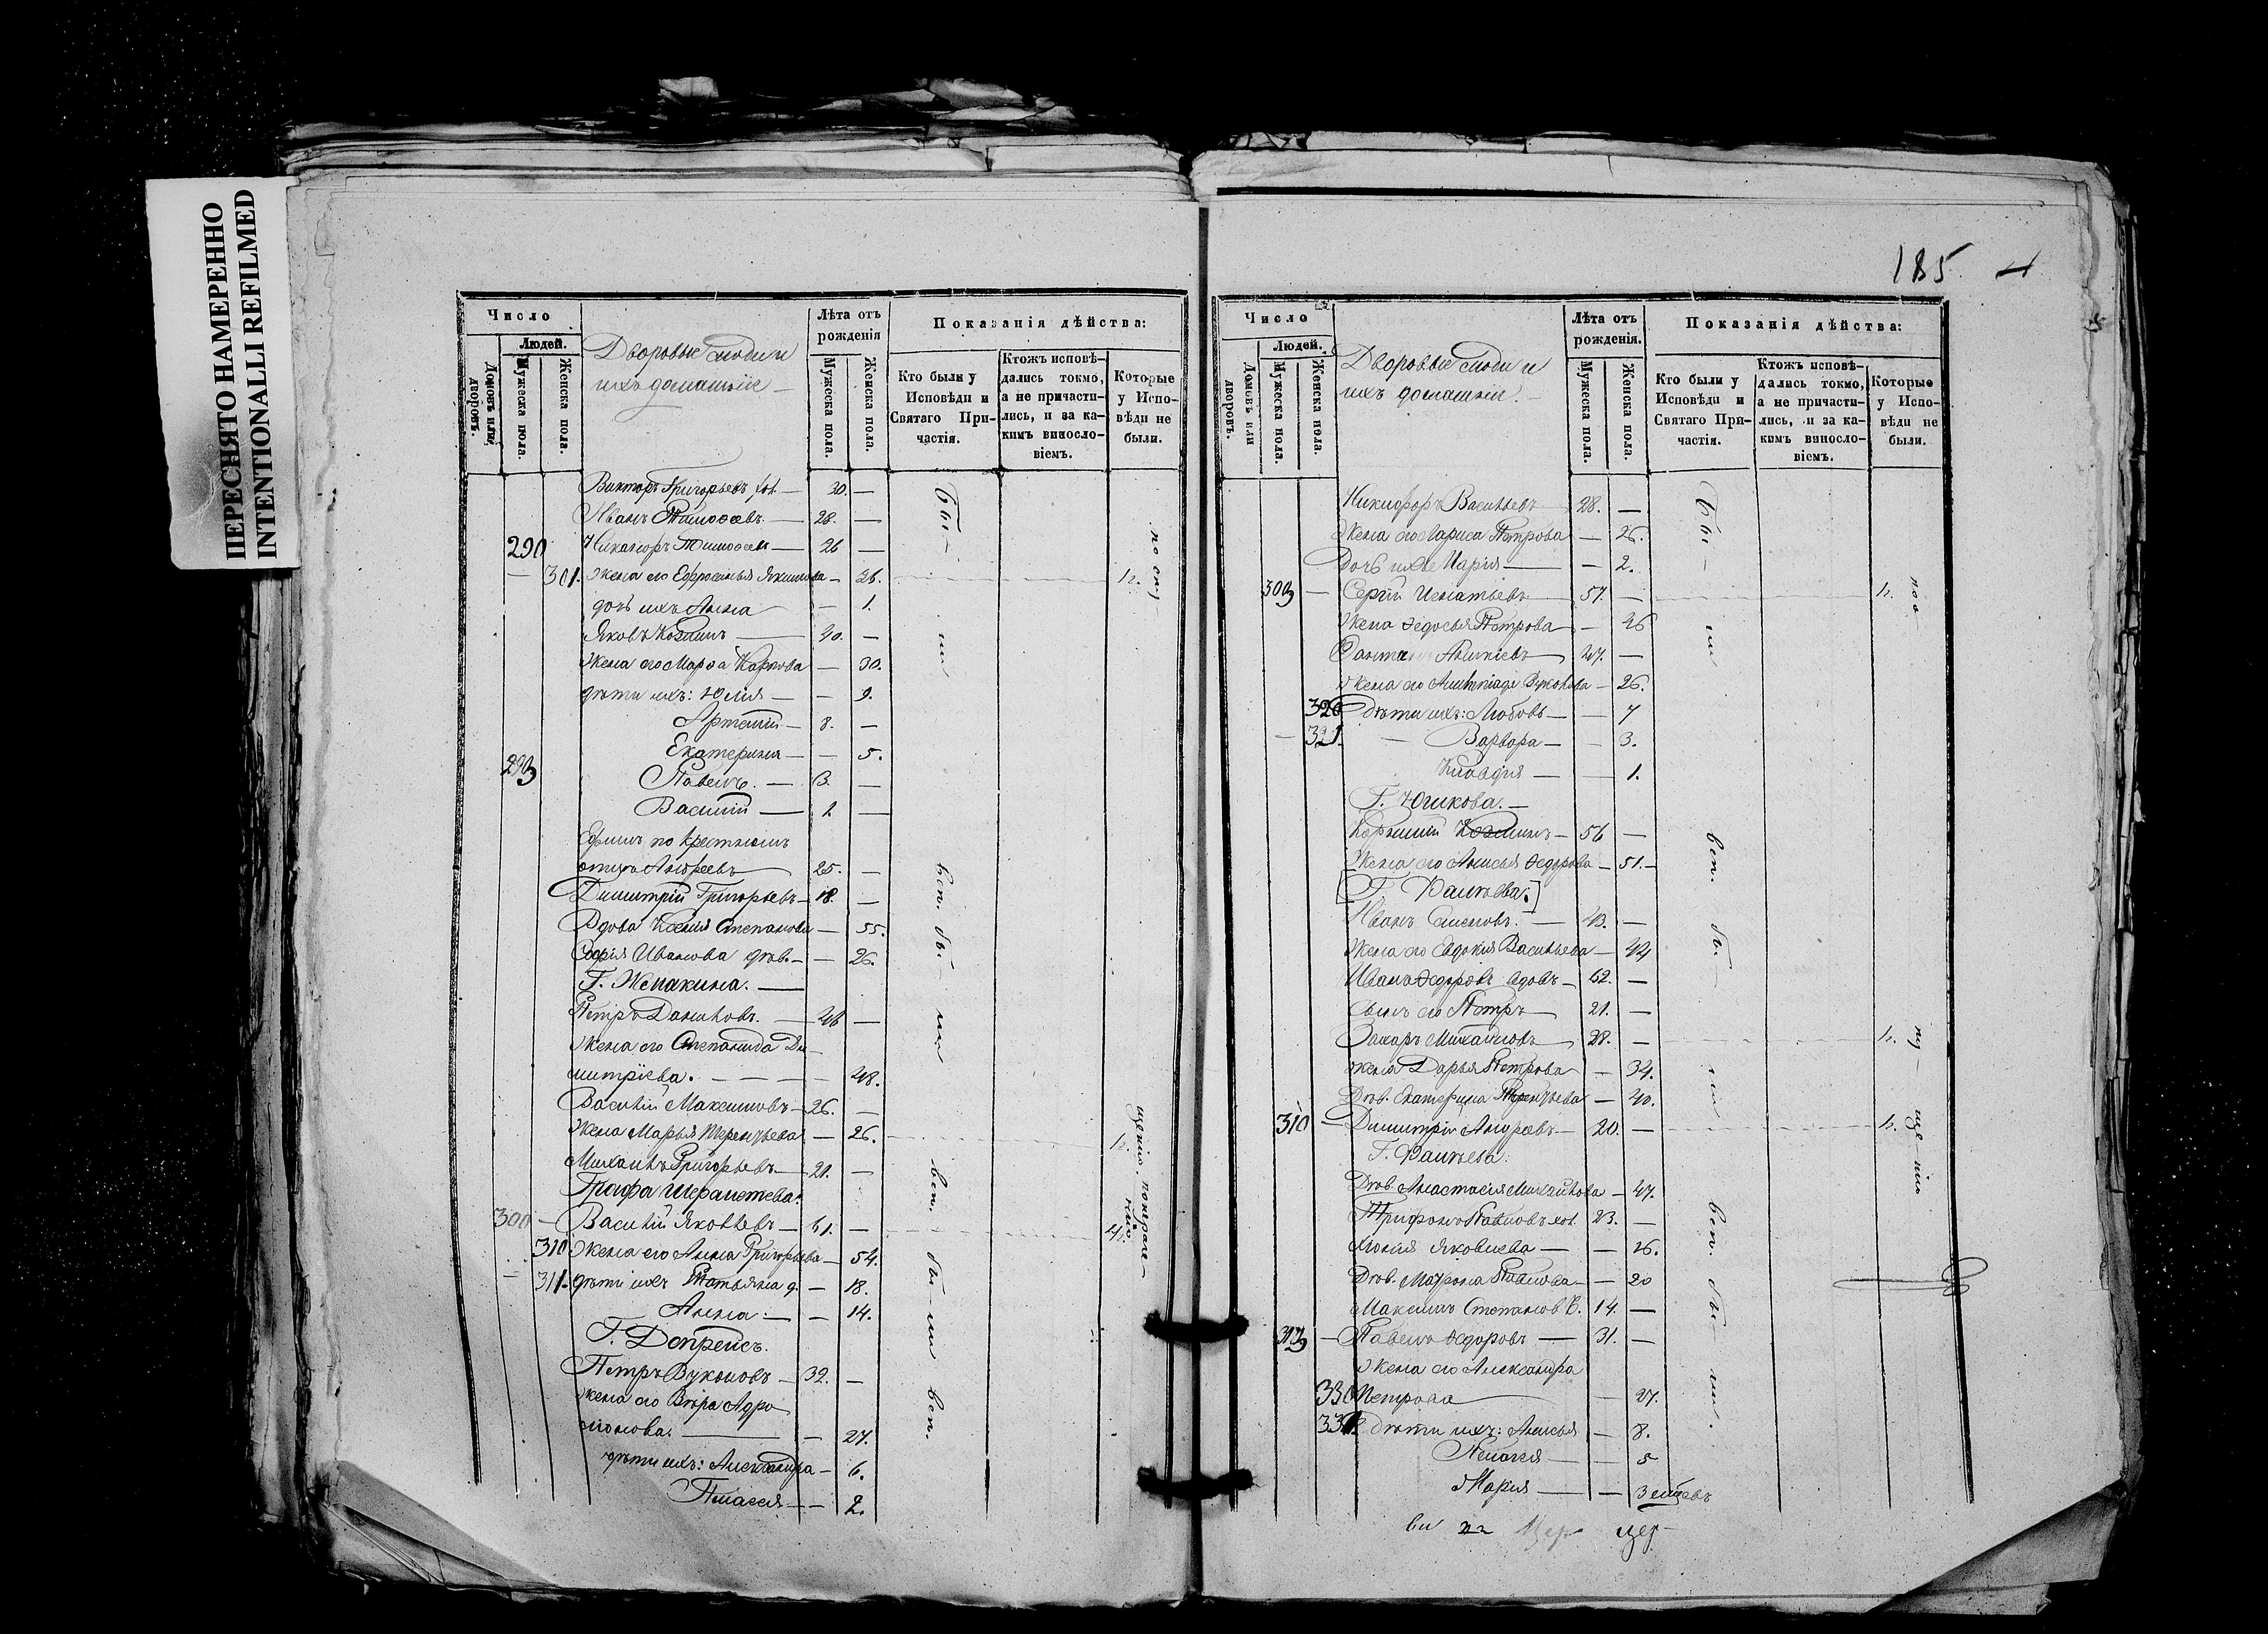 ПЕРЕСНЯТО НАМЕРЕННО
INTENTIONALLI REFILMED
Число
Людей.
Домовъ или дворовъ.
Мужеска пола.
Женска пола.
Дворовые люди и
ихъ домашніе
Лѣта отъ
рожденія
Мужеска пола.
Женска пола.
Показанія дѣйства:
Кто были у
Исповѣди и
Святаго При-
частія.
Ктожъ исповѣ-
дались токмо,
а не причасти-
лись, и за ка-
кимъ винosло-
віемъ.
Которые
у Испо-
вѣди не
были.
Викторъ Григорьевъ хол. — 30. —
Иванъ Тимоѳеевъ — 28. —
290 Никаноръ Тимоѳеевъ — 26 —
— 301. Жена его Ефросинья — 26.
дочь ихъ Анна — 1.
Яковъ Козминъ — 40. —
Жена его Марѳа Карпова — 30.
дѣти ихъ: Юлія — — 9.
Артемій — 8. —
Екатерина — — 5.
293 Павелъ. — 3. —
Василій — 1. —
Ефимъ по крестномъ
отцѣ Андреевъ 25. —
Димитрій Григорьевъ — 18. —
Вдова Ксенія Степанова — 55.
Софія Иванова дѣв. — — 26.
Г. Жемакина. —
Петръ Даниловъ. — 46 —
Жена его Степанида Ди-
митріева. — 48.
Василій Максимовъ — 26. —
Жена Марья Терентьева — 26.
Михаилъ Григорьевъ — 21. —
Графа Шереметева.
300 — Василій Яковлевъ — 61. —
310 Жена его Анна Григорьева — 54.
— 311. дѣти ихъ Татьяна д. — 18.
Анна — — 14.
Г. Депрейсъ.
Петръ Вуколовъ — 32. —
жена его Вѣра
— 27.
дѣти ихъ: Александра — 6.
Пелагея — — 2.
185
Число
Людей.
Домовъ или дворовъ.
Мужеска пола.
Женска пола.
Дворовые люди и
ихъ домашніи.
Лѣта отъ
рожденія.
Мужеска пола.
Женска пола.
Показанія дѣйства:
Кто были у
Исповѣди и
Святаго При-
частія.
Ктожъ исповѣ-
дались токмо,
а не причасти-
лись, и за ка-
кимъ винosло-
віемъ.
Которые
у Испо-
вѣди не
были.
Никифоръ Васильевъ 28. —
Жена его Лариса Петрова — 26.
Дочь ихъ Марія — — 2.
303 — Сергій Игнатьевъ 57. —
Жена Ѳедосья Петрова — 46
47. —
Жена его Вуколова — 26.
320 дѣти ихъ: Любовь — — 7
— 321. — Варвара — — 3.
Клавдія — — 1.
Г. Юшкова. —
Козминъ — 56 —
Жена его Анисья Ѳедорова — 51. —
Иванъ Семеновъ. — 43. —
Жена его Евдокія Васильева — 44
Иванъ Ѳедоровъ вдовъ — 62. —
Сынъ его Петръ — 21. —
Захаръ Михайловъ 28. —
жена Дарья Петрова — 34.
Дѣв. Екатерина Терентьева — 40.
310 — Димитрій Андреевъ — 20. —
Дѣв. Анастасія Михайлова — 47.
Трифонъ Павловъ хол. 23. —
Яковлева — — 26.
Дѣв. Матрона Павлова — — 20
Максимъ Степановъ В. 14. —
313 — Павелъ Ѳедоровъ — 31. —
Жена его Александра
330 Петрова — 27.
331. дѣти ихъ: Анисья — 8.
Пелагея — — 5
Марія — —